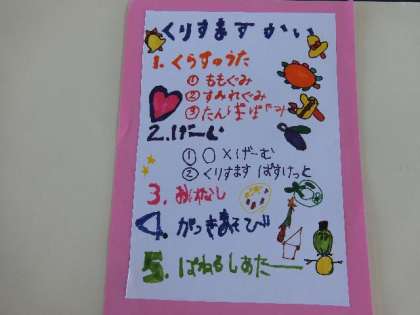 くりすますかい
1. くらすのうた
① ももぐみ
② すみれぐみ
③ たんぽぽぐみ
2. げーむ
① ○×げーむ
② くりすます ばすけっと
3. おはなし
4. がっきあそび
5. ぱねるしあたー